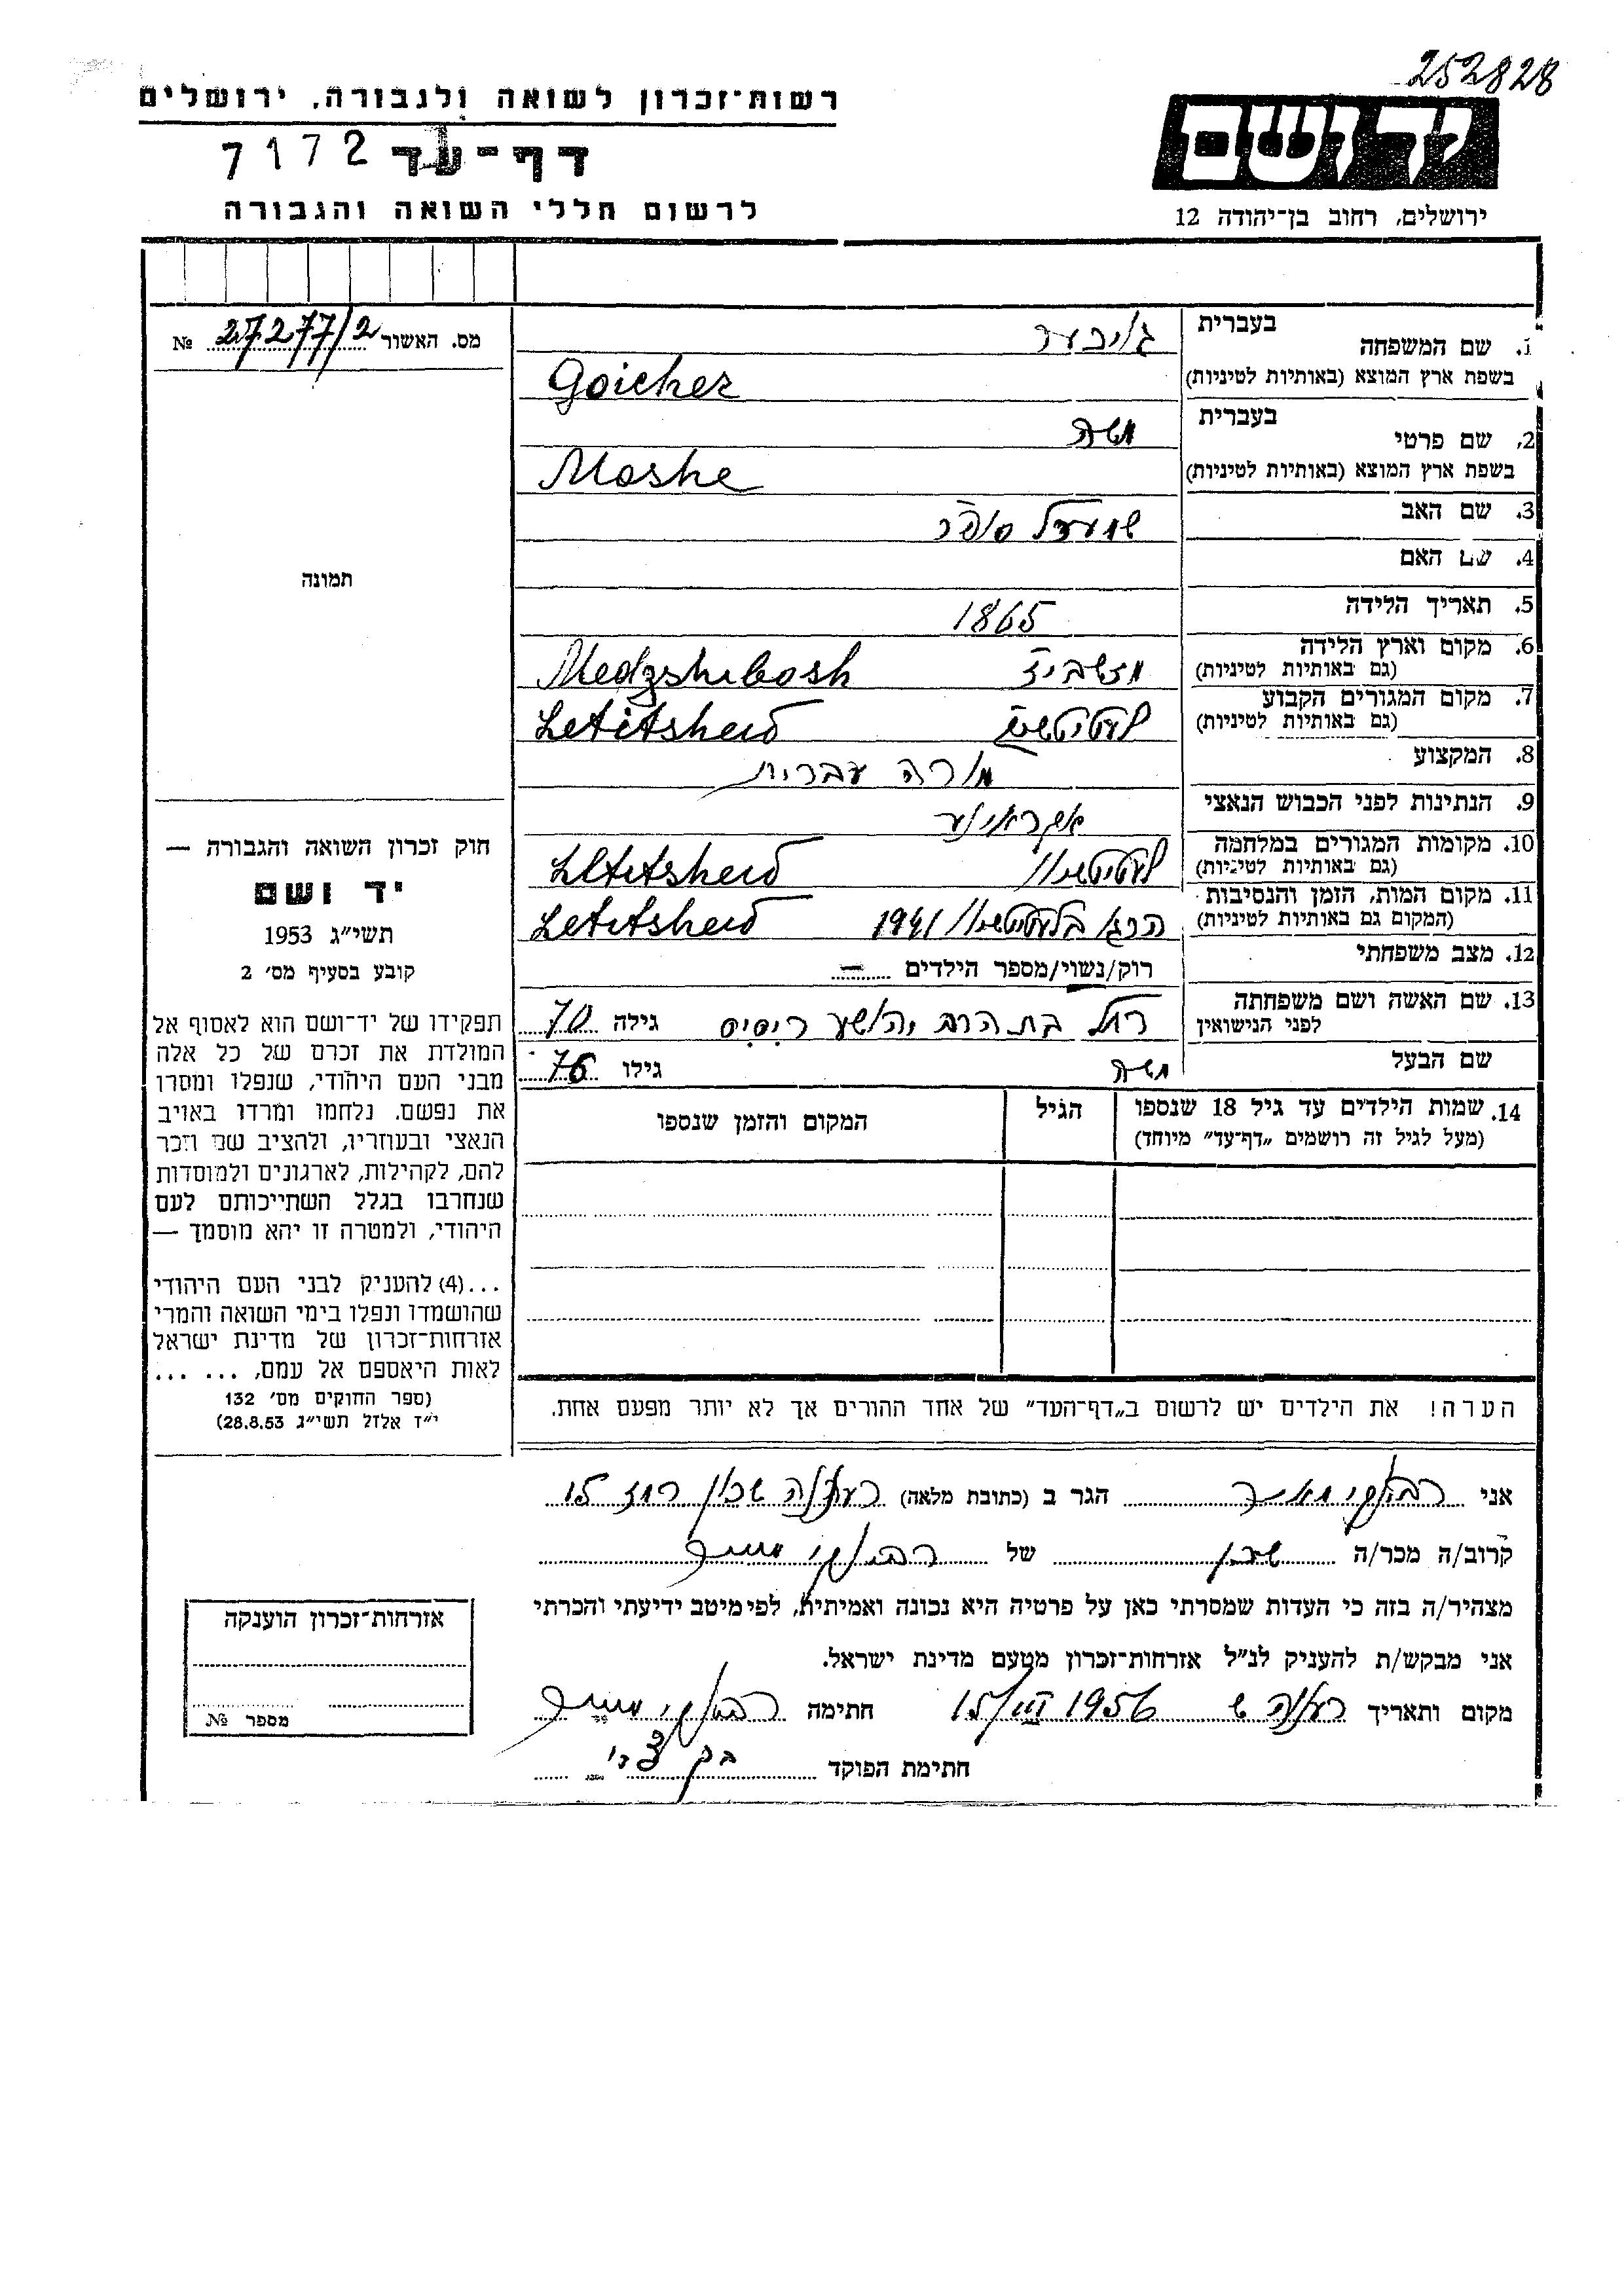 252828
רשות־זכרון לשואה ולגבורה, ירושלים
דף־עד 7172
לרשום חללי השואה והגבורה
יד ושם
ירושלים, רחוב בן־יהודה 12
מס. האשור 27277/2 №
תמונה
חוק זכרון השואה והגבורה —
יד ושם
תשי״ג 1953
קובע בסעיף מס׳ 2
תפקידו של יד־ושם הוא לאסוף אל
המולדת את זכרם של כל אלה
מבני העם היהודי, שנפלו ומסרו
את נפשם, נלחמו ומרדו באויב
הנאצי ובעוזריו, ולהציב שם וזכר
להם, לקהילות, לארגונים ולמוסדות
שנחרבו בגלל השתייכותם לעם
היהודי, ולמטרה זו יהא מוסמך —
...(4) להעניק לבני העם היהודי
שהושמדו ונפלו בימי השואה והמרי
אזרחות־זכרון של מדינת ישראל
לאות היאספם אל עמם, ... ...
(ספר החוקים מס׳ 132
י״ד אלול תשי״ג 28.8.53)
בעברית
1. שם המשפחה
בשפת ארץ המוצא (באותיות לטיניות) Goicher
בעברית
2. שם פרטי משה
בשפת ארץ המוצא (באותיות לטיניות) Moshe
3. שם האב
4. שם האם
5. תאריך הלידה 1865
6. מקום וארץ הלידה Medzshibosh
(גם באותיות לטיניות)
7. מקום המגורים הקבוע Letitshew
(גם באותיות לטיניות)
8. המקצוע מורה עברית
9. הנתינות לפני הכבוש הנאצי
10. מקומות המגורים במלחמה Letitshew
(גם באותיות לטיניות)
11. מקום המות, הזמן והנסיבות 1941 Letitshew
(המקום גם באותיות לטיניות)
12. מצב משפחתי רוק/נשוי/מספר הילדים —
13. שם האשה ושם משפחתה רחל בת הרב יהושע גילה 70
לפני הנישואין
שם הבעל משה גילו 76
14. שמות הילדים עד גיל 18 שנספו הגיל המקום והזמן שנספו
(מעל לגיל זה רושמים „דף־עד״ מיוחד)
הערה! את הילדים יש לרשום ב„דף־העד״ של אחד ההורים אך לא יותר מפעם אחת.
אני הגר ב (כתובת מלאה) רעננה שכון 15
קרוב/ה מכר/ה שכן של
מצהיר/ה בזה כי העדות שמסרתי כאן על פרטיה היא נכונה ואמיתית, לפי מיטב ידיעתי והכרתי
אני מבקש/ת להעניק לנ״ל אזרחות־זכרון מטעם מדינת ישראל.
מקום ותאריך רעננה 15/VIII 1956 חתימה
חתימת הפוקד
אזרחות־זכרון הוענקה
מספר №